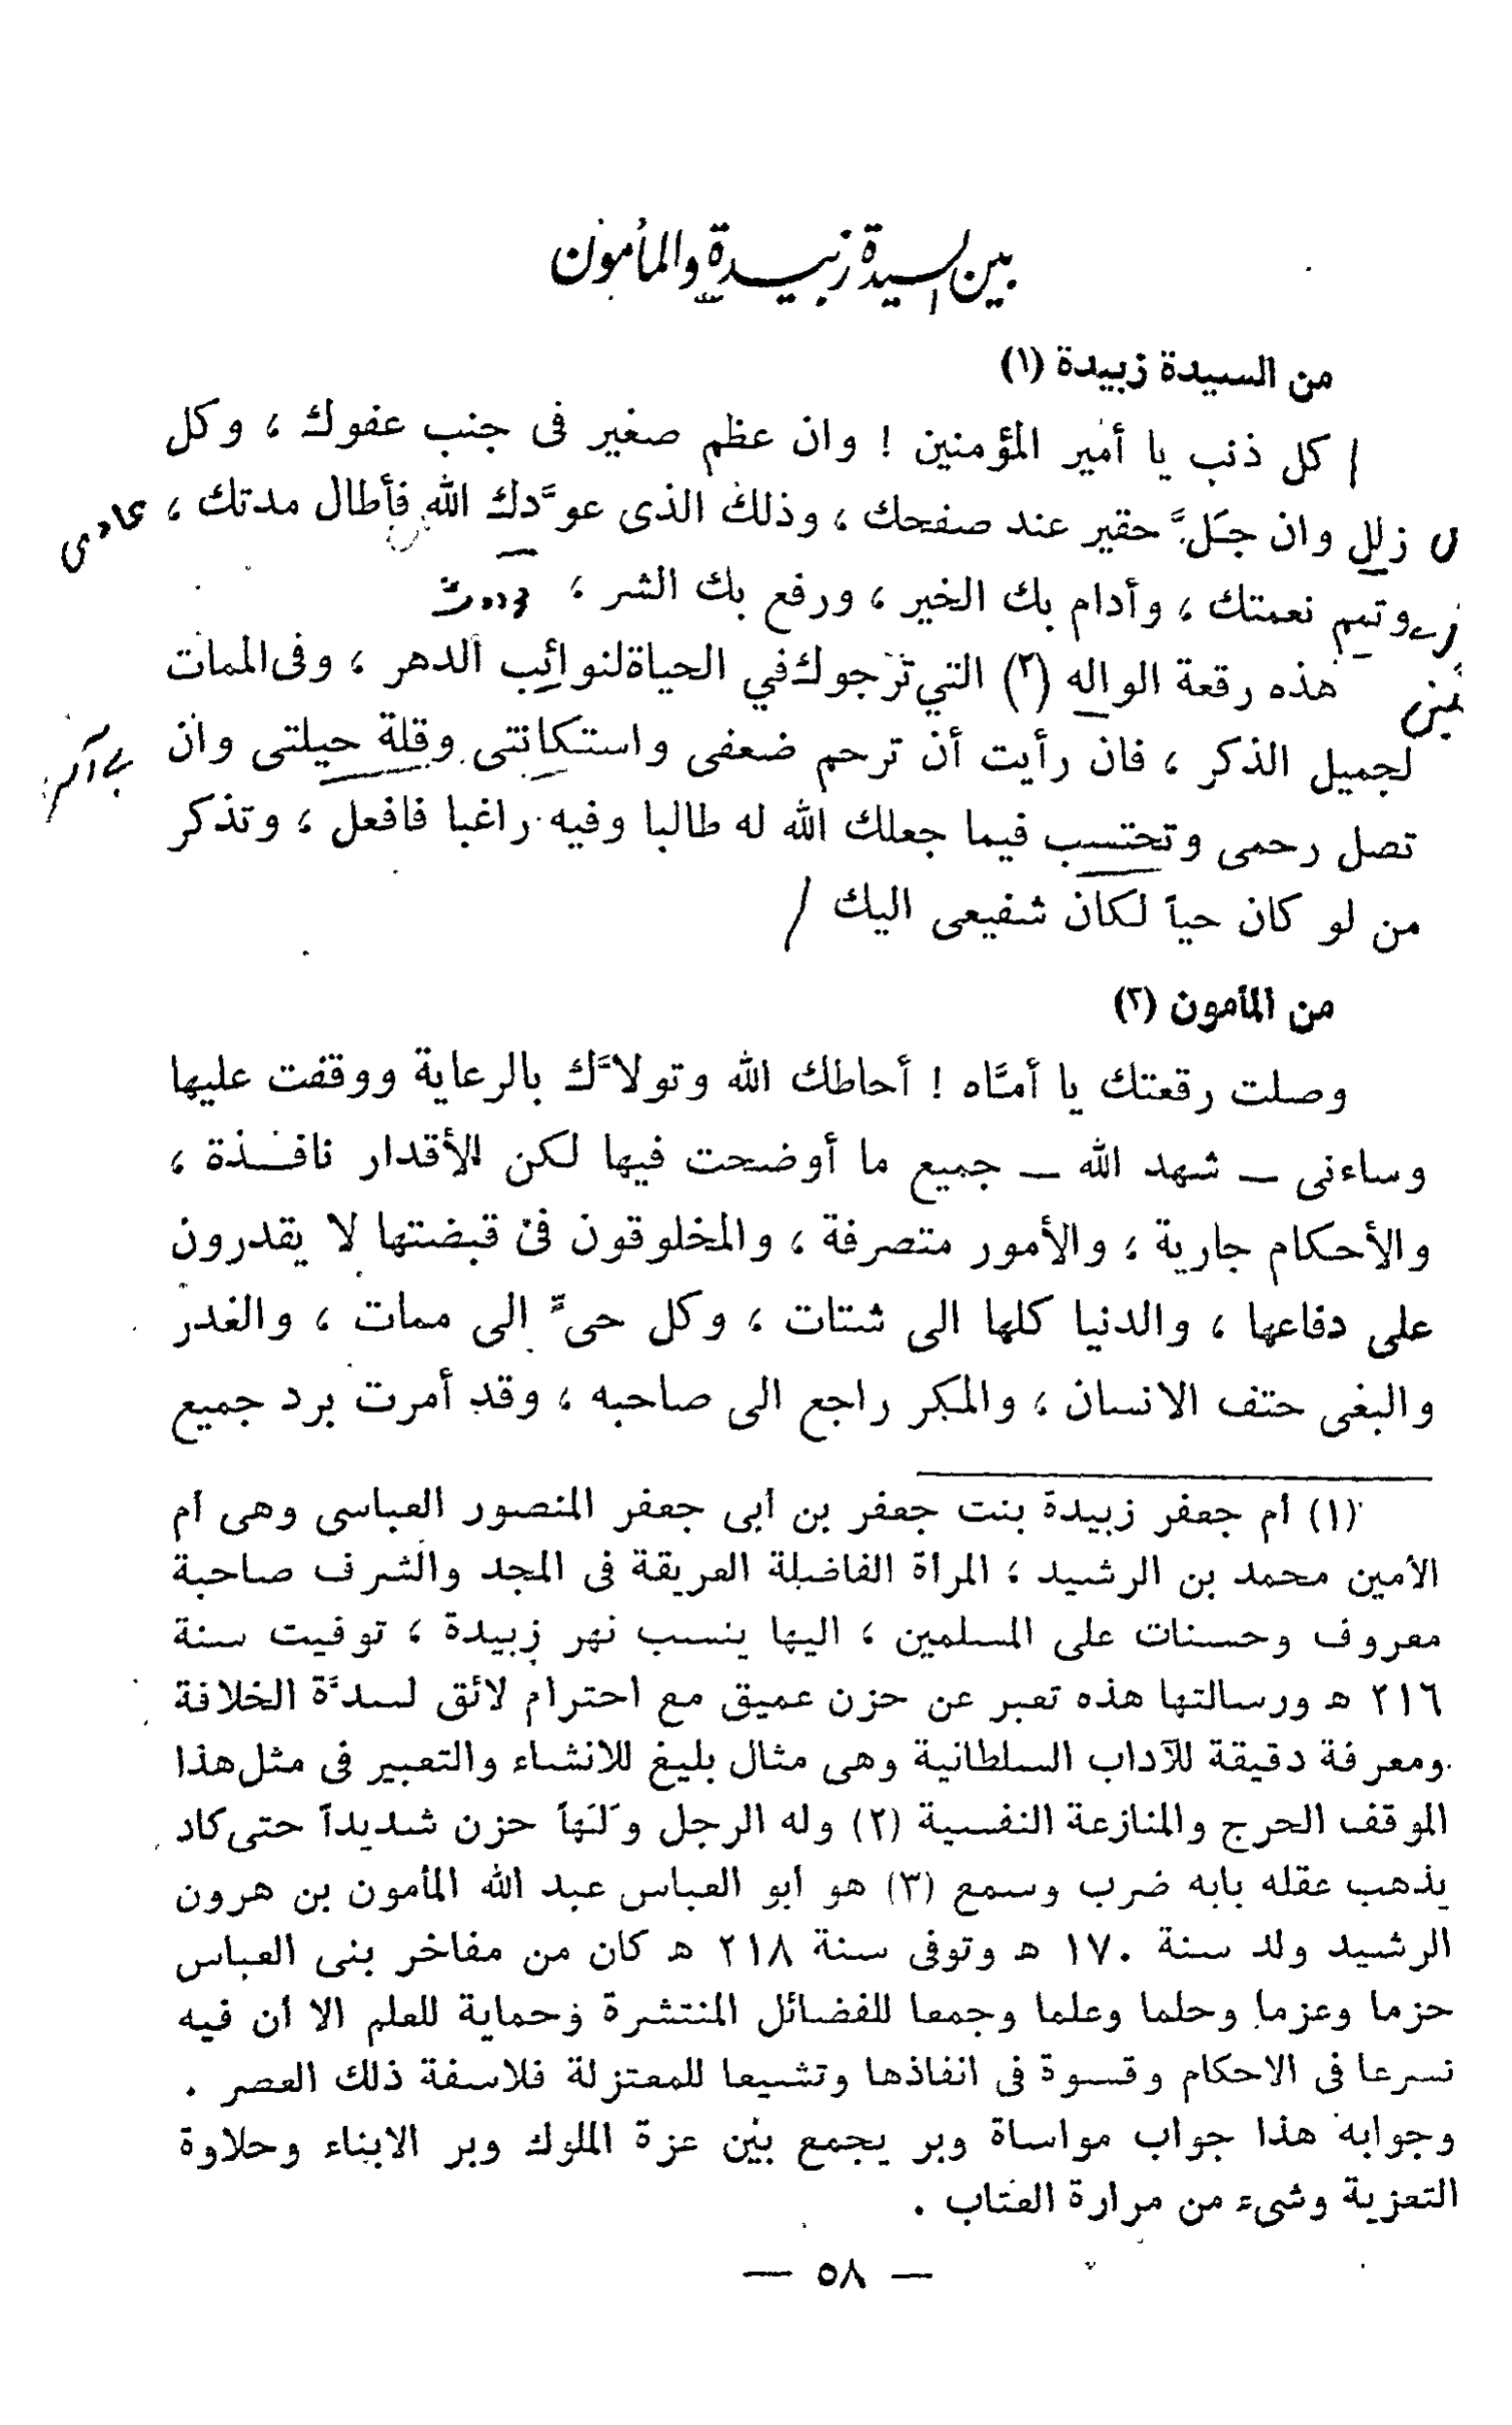 بين السيدة زبيدة والمأمون
من السيدة زبيدة (١)
كل ذنب يا أمير المؤمنين ! وان عظم صغير فى جنب عفوك ، وكل
زلل وان جَلَّ حقير عند صفحك ، وذلك الذى عوَّدك الله فأطال مدتك ،
وتمم نعمتك ، وأدام بك الخير ، ورفع بك الشر ،
هذه رقعة الواله (٢) التي ترجوك في الحياة لنوائب الدهر ، وفى الممات
لجميل الذكر ، فان رأيت أن ترحم ضعفى واستكانتى وقلة حيلتى وان
تصل رحمى وتحتسب فيما جعلك الله له طالبا وفيه راغبا فافعل ، وتذكر
من لو كان حياً لكان شفيعى اليك
من المأمون (٣)
وصلت رقعتك يا أمَّاه ! أحاطك الله وتولاَّك بالرعاية ووقفت عليها
وساءنى – شهد الله – جميع ما أوضحت فيها لكن الأقدار نافذة ،
والأحكام جارية ، والأمور متصرفة ، والمخلوقون فى قبضتها لا يقدرون
على دفاعها ، والدنيا كلها الى شتات ، وكل حىٍّ الى ممات ، والغدر
والبغى حتف الانسان ، والمكر راجع الى صاحبه ، وقد أمرت برد جميع
(١) أم جعفر زبيدة بنت جعفر بن أبى جعفر المنصور العباسى وهى أم
الأمين محمد بن الرشيد ، المرأة الفاضلة العريقة فى المجد والشرف صاحبة
معروف وحسنات على المسلمين ، اليها ينسب نهر زبيدة ، توفيت سنة
٢١٦ هـ ورسالتها هذه تعبر عن حزن عميق مع احترام لائق لسدَّة الخلافة
ومعرفة دقيقة للآداب السلطانية وهى مثال بليغ للانشاء والتعبير فى مثل هذا
الموقف الحرج والمنازعة النفسية (٢) وله الرجل وَلَهاً حزن شديداً حتى كاد
يذهب عقله بابه ضرب وسمع (٣) هو أبو العباس عبد الله المأمون بن هرون
الرشيد ولد سنة ١٧٠ هـ وتوفى سنة ٢١٨ هـ كان من مفاخر بنى العباس
حزما وعزما وحلما وعلما وجمعا للفضائل المنتشرة وحماية للعلم الا أن فيه
تسرعا فى الاحكام وقسوة فى انفاذها وتشيعا للمعتزلة فلاسفة ذلك العصر .
وجوابه هذا جواب مواساة وبر يجمع بين عزة الملوك وبر الابناء وحلاوة
التعزية وشىء من مرارة العتاب .
— ٥٨ —